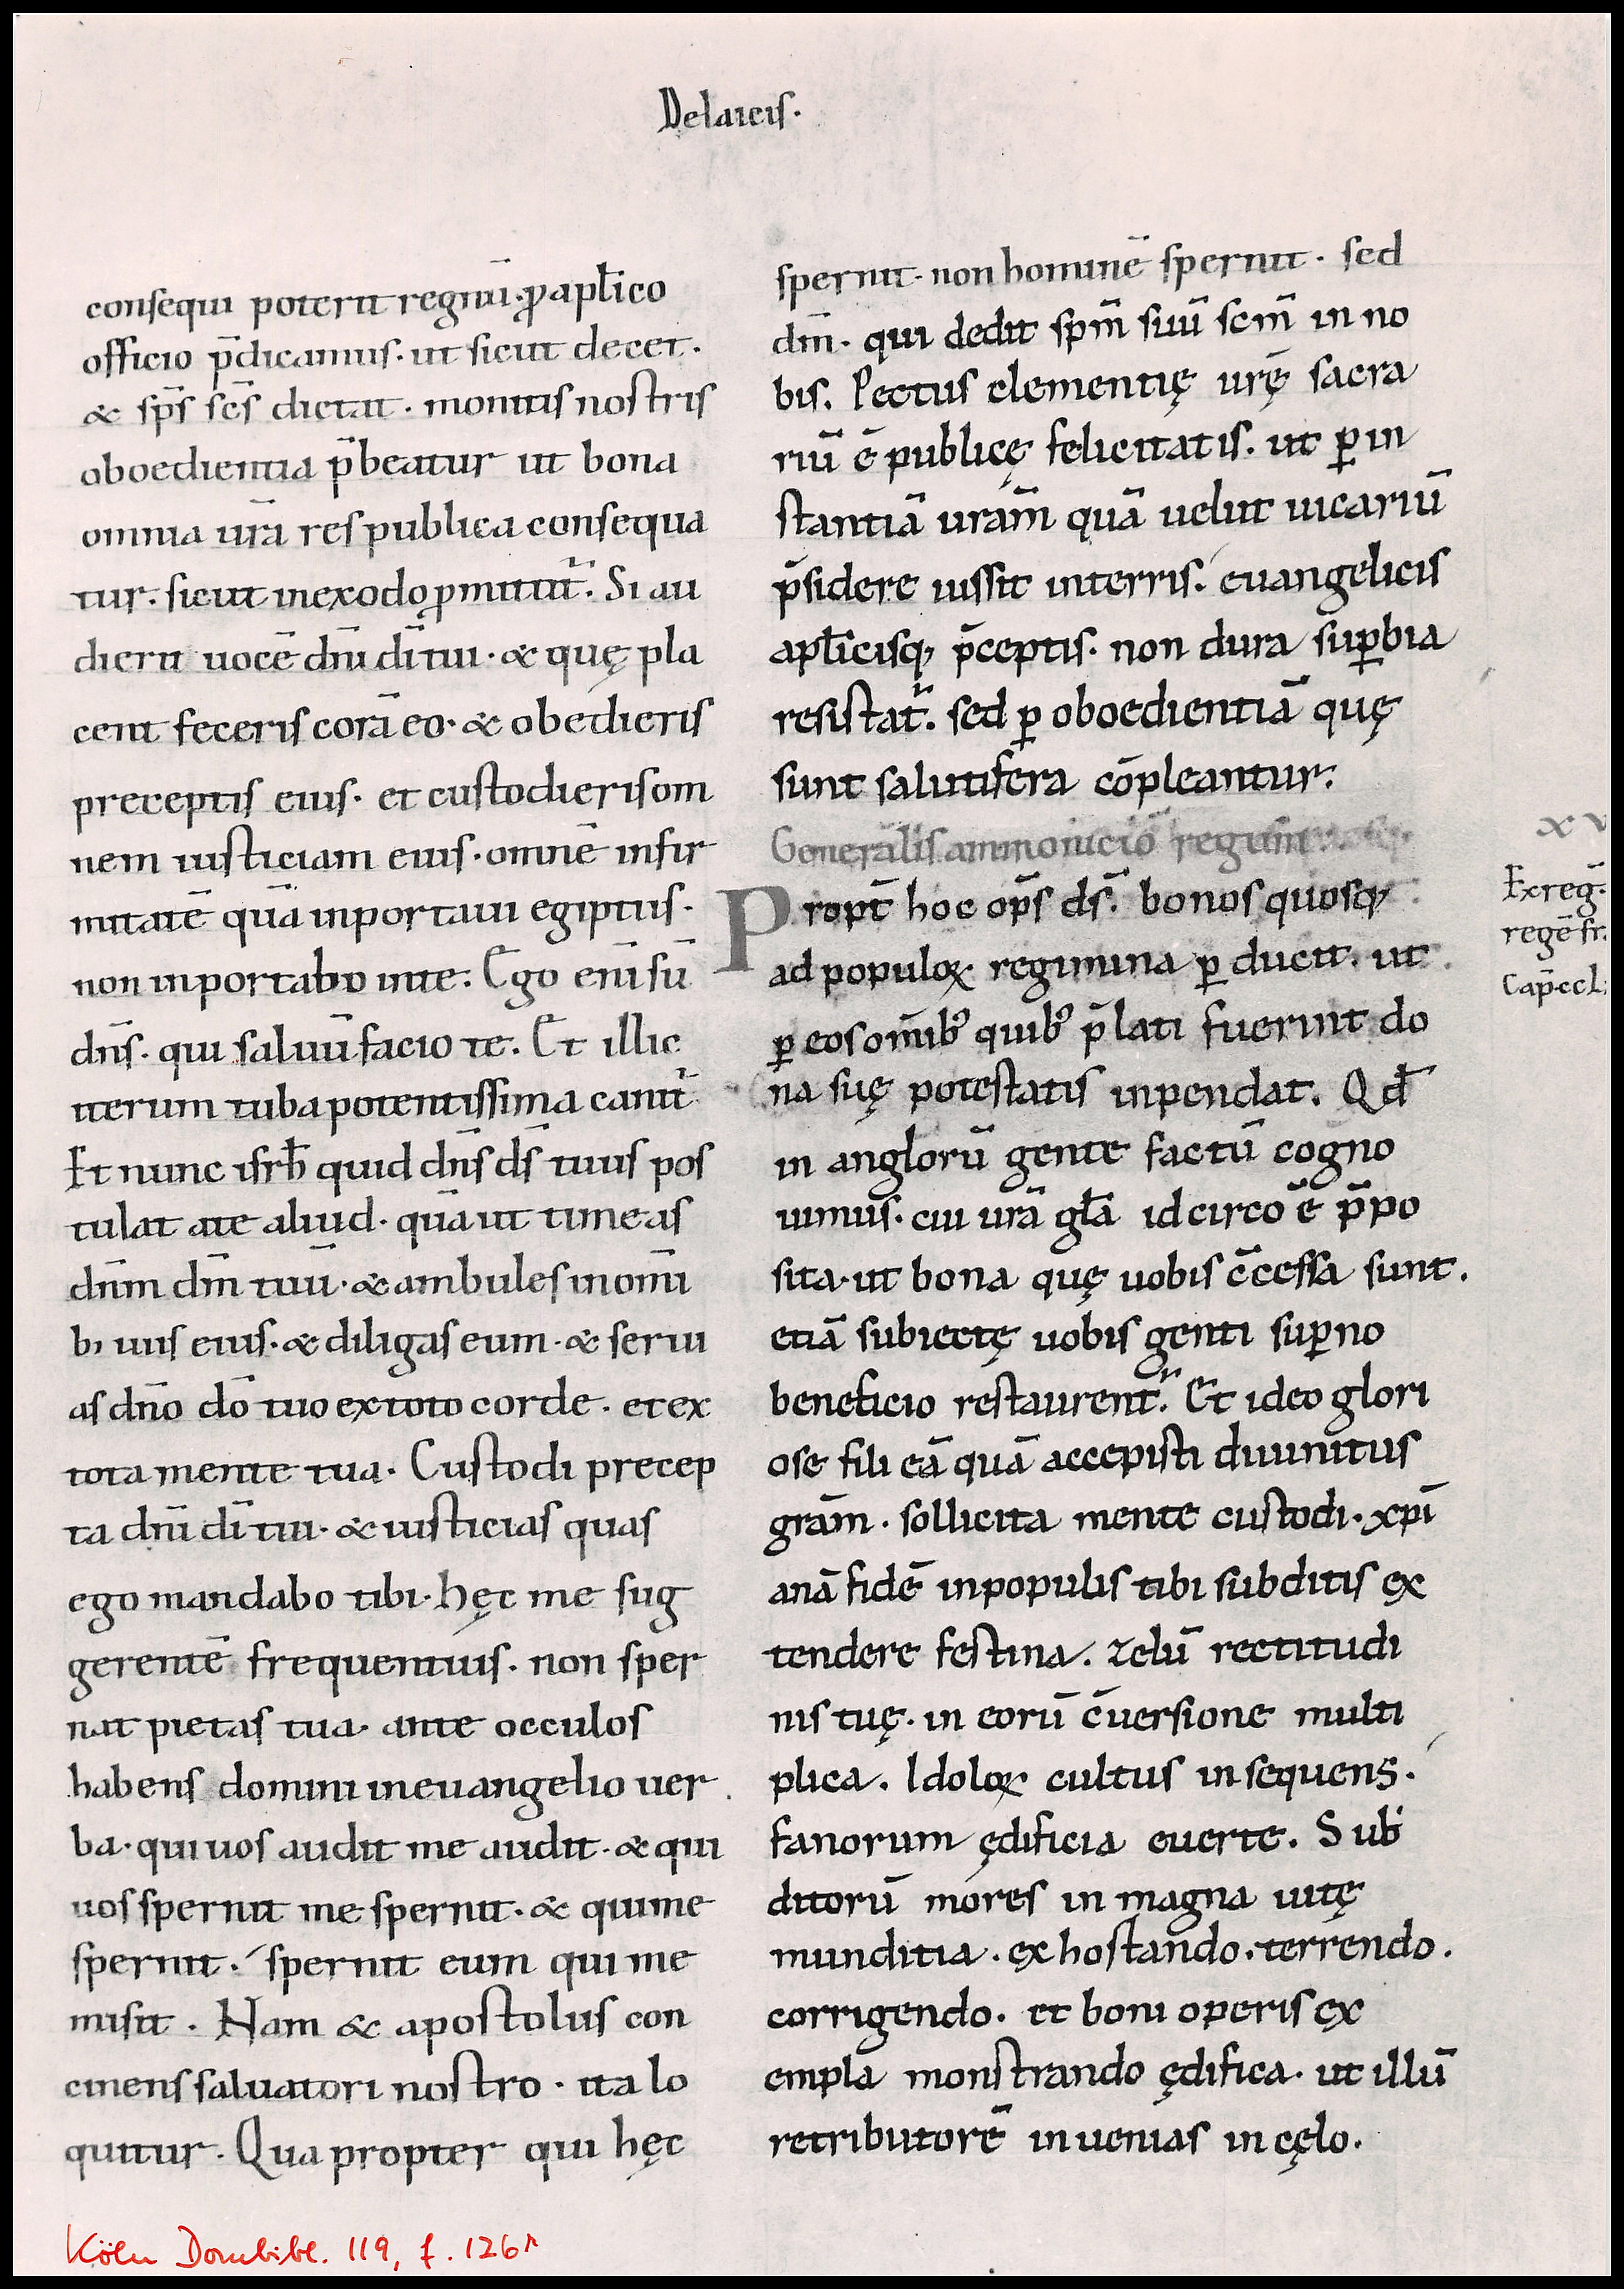 Delaicis.
consequi poterit regnū. ꝓ apl̄ico
officio p̄dicamus. ut sicut decet.
& sp̄s sc̄s dictat. monitis nostris
oboedientia p̄beatur ut bona
omnia ur̄a res publica consequa
tur. sicut inexodo ꝓmittit᷑. Si au
dieris uocē dn̄i dī tui. & quę pla
cent feceris corā eo. & obedieris
preceptis eius. et custodieris om
nem iusticiam eius. omnē infir
mitatē quā inportaui egiptus.
non inportabo inte. Ego eni sū
dn̄s. qui saluū facio te. Et illic
iterum tuba potentissima canit᷑
Et nunc isrl̄ quid dn̄s ds̄ tuus pos
tulat ate aliud. quā ut timeas
dn̄m dm̄ tuū. & ambules inomī
b; uiis eius. & diligas eum. & serui
as dn̄o dō tuo extoto corde. et ex
tota mente tua. Custodi precep
ta dn̄i dī tui. & iusticias quas
ego mandabo tibi. hęc me sug
gerentē frequentius. non sper
nat pietas tua. ante occulos
habens domini ineuangelio uer
ba. qui uos audit me audit. & qui
uos spernit me spernit. & qui me
spernit. spernit eum qui me
misit. Nam & apostolus con
cinens saluatori nostro. ita lo
quitur. Qua propter qui hęc
spernit. non hominē spernit. sed
dm̄. qui dedit sp̄m suū sc̄m in no
bis. Pectus clementię ur̄ę sacra
riū ē publicę felicitatis. ut ꝑ in
stantiā ur̄am quā uelut uicariū
p̄sidere iussit interris. euangelicis
apl̄icisq; p̄ceptis. non dura suꝑbia
resistat᷑. sed ꝑ oboedientiā quę
sunt salutifera cōpleantur.
Generalis ammonicio regum
Propt̄ hoc op̄s ds̄. bonos quosq;
ad populoꝝ regimina ꝑ ducit. ut
ꝑ eos omīb; quib; p̄lati fuerint do
na suę potestatis inpendat. Qd̄
in anglorū gente factū cogno
uimus. cui ur̄a gl̄a idcirco ē p̄po
sita. ut bona quę uobis c̄cessa sunt.
etiā subiectę uobis genti suꝑno
beneficio restaurent᷑. Et ideo glori
ose fili eā quā accepisti diuinitus
grām. sollicita mente custodi. xp̄i
anā fidē inpopulis tibi subditis ex
tendere festina. Zelū rectitudi
nis tuę. in eorū c̄uersione multi
plica. Idoloꝝ cultus insequens.
fanorum ędificia euerte. Sub
ditorū mores in magna uitę
munditia. exhostando. terrendo.
corrigendo. et boni operis ex
empla monstrando ędifica. ut illū
retributorē inuenias in cęlo.
xv
Exreḡ.
regē fr.
Cap̄. ccl.
Köln Dombibl. 119, f. 126r